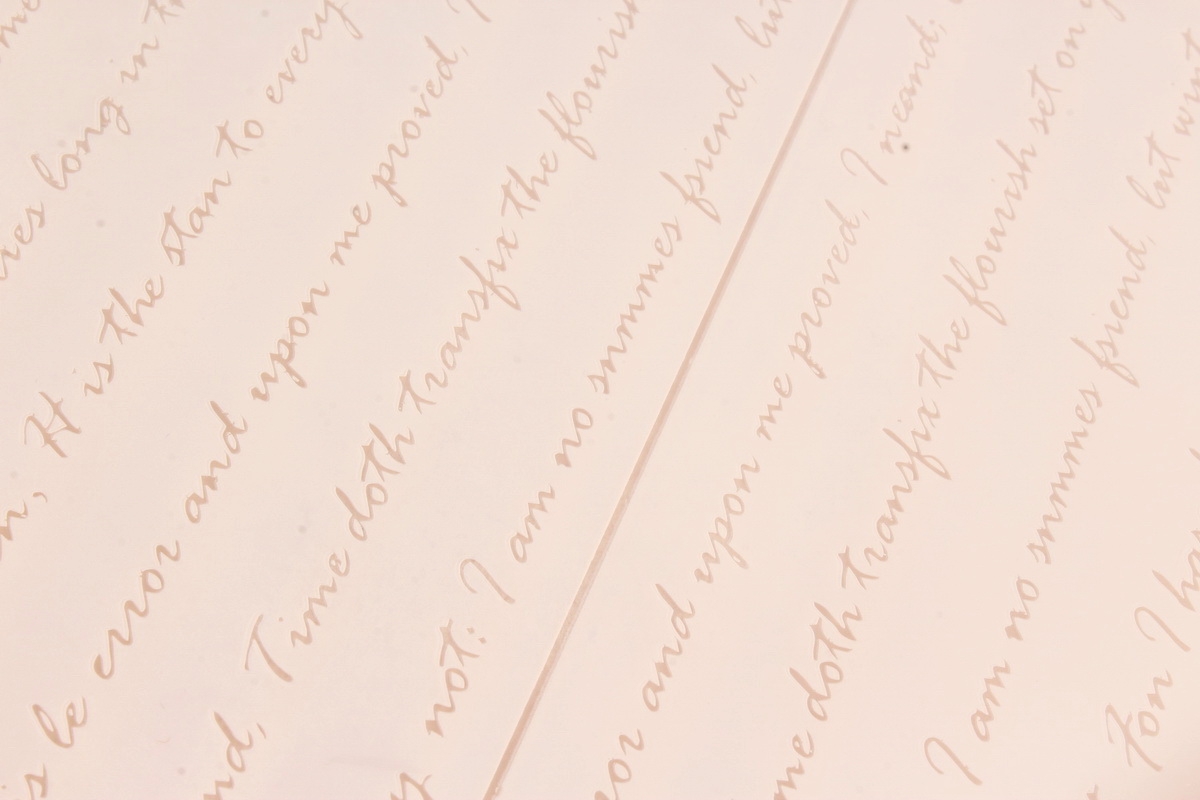 long in
It is the stan to every
is be error and upon me proved,
Time doth transfix the flourish
not: I am no summes friend, but
error and upon me proved, I neand;
me doth transfix the flourish set on
I am no summes friend, but wint
Fon I